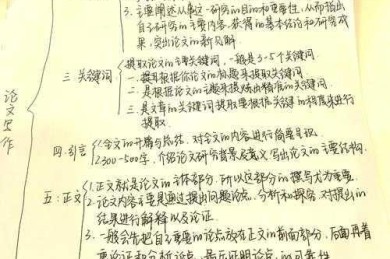 3. 主要阐述从事这一研究的目的和重要性, 从而指出
自己研究的主要内容, 获得的基本结论和研究成
果, 突出论文的新见解.
三. 关键词
提取论文的主要关键词, 一般是3-5个关键词
一. 提取根据你论文的标题来提取关键词
二. 是根据论文的主题来提炼出精准的关键词
三. 是文章的关键词提取要根据关键词的程度来进行
提取.
论文写作
四. 引言
1. 全文的开端与总结, 对全文的内容进行简要
2. 300-500字, 介绍论文研究背景及意义写出论文的主要结构.
五: 正文
1. 正文就是论文的主体部分, 所以这部分的撰写尤为重要.
2. 论文内容主要是通过提出问题论点, 分析和探究, 对提出的
结果进行解释以及论证.
3. 一般会先把自己主要的论点放在正文的前面部分, 后面再着
重论证和分析论点, 最后证明论点的可靠性